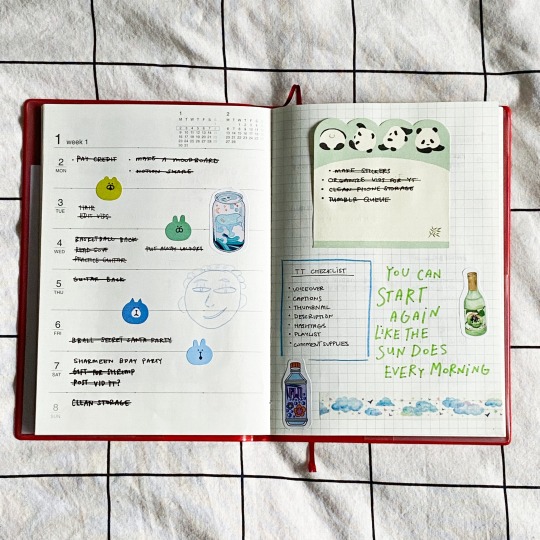 1 week 1
1
M T W T F S S
2
M T W T F S S
2
MON
• PAY CREDIT
• MAKE A MOODBOARD
• NOTION SHARE
3
TUE
HAIR
EDIT VIDS
4
WED
BASKETBALL BACK
READ
PRACTICE GUITAR
PUT AWAY
5
THU
GUITAR BACK
6
FRI
BBALL SECRET SANTA PARTY
7
SAT
SHARMEEN BDAY PARTY
GIFT FOR SHRIMP
POST VID YT?
8
SUN
CLEAN STORAGE
• MAKE STICKERS
• ORGANIZE VIDS FOR YT
• CLEAN PHONE STORAGE
• TUMBLR QUEUE
TT CHECKLIST
• VOICEOVER
• CAPTIONS
• THUMBNAIL
• DESCRIPTION
• HASHTAGS
• PLAYLIST
• COMMENT SUPPLIES
YOU CAN
START
AGAIN
LIKE THE
SUN DOES
EVERY MORNING